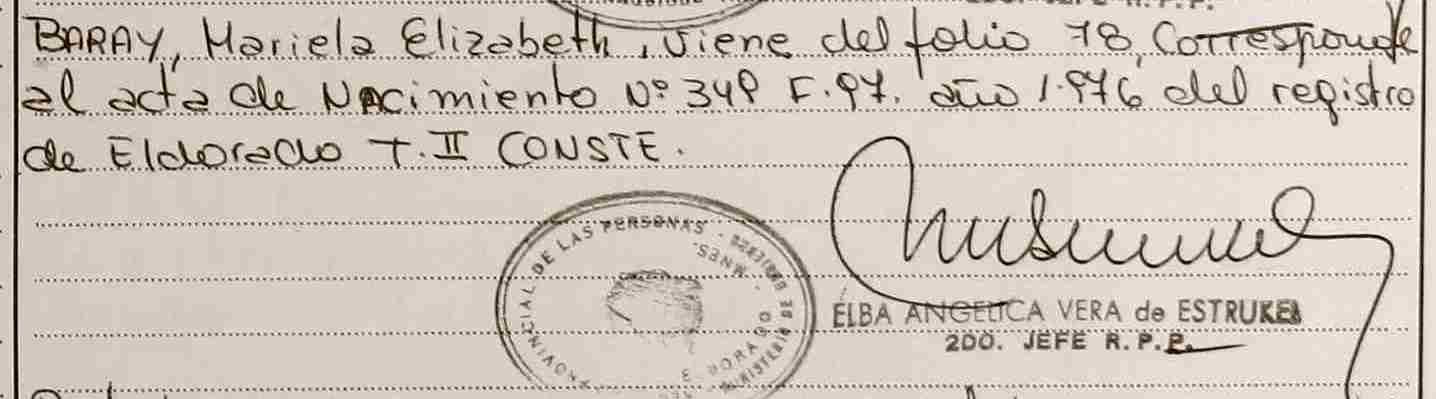 2DO. JEFE R.P.P.
BARAY, Mariela Elizabeth, viene del folio 78, Corresponde
al acta de Nacimiento Nº 349 F.97. año 1.976 del registro
de Eldorado T.II CONSTE.
PROVINCIAL DE LAS PERSONAS
MNES.
ELBA ANGELICA VERA de ESTRUKEL
2DO. JEFE R.P.P.